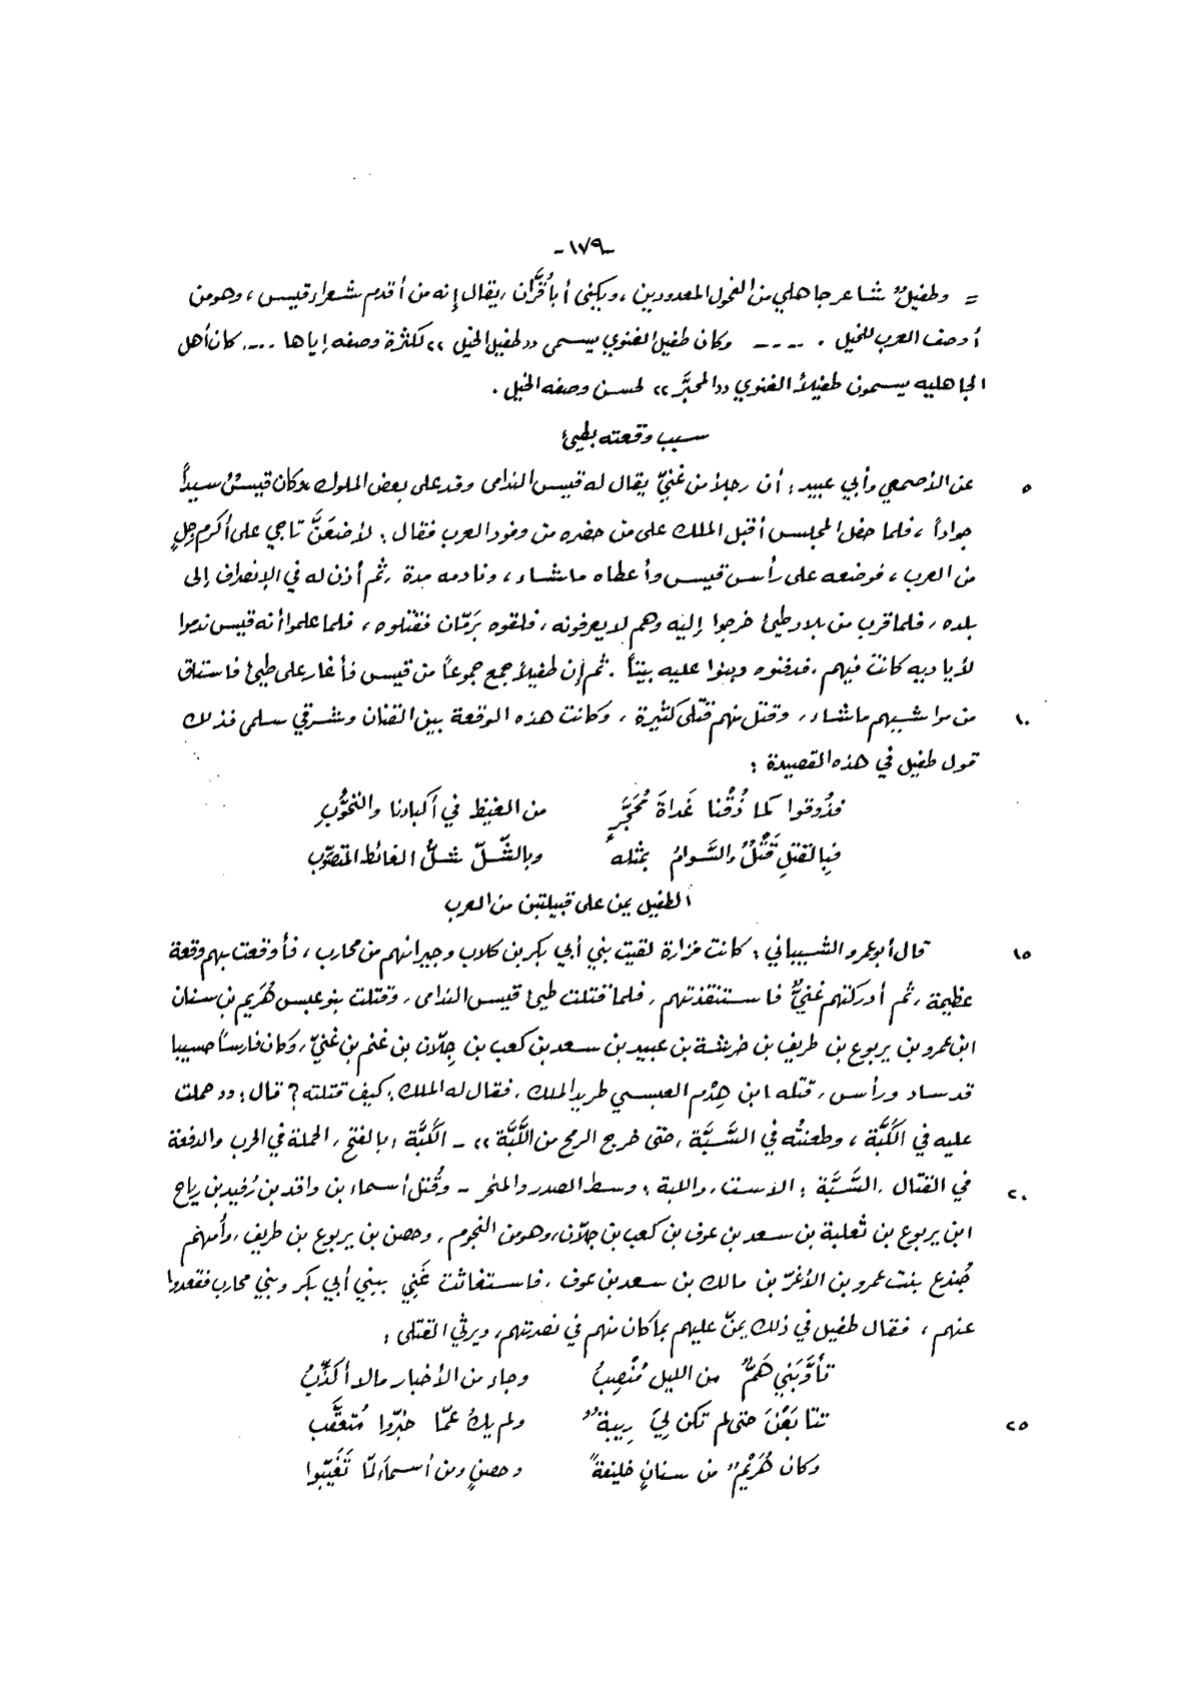 -١٧٩-
= وطفيلٌ شاعر جاهلي من الفحول المعدودين، ويكنى أبا قُرَّان، يقال إنه من أقدم شعراء قيس، وهو من
أوصف العرب للخيل. ---- وكان طفيل الغنوي يسمى «طفيل الخيل» لكثرة وصفه إياها .... كان أهل
الجاهليه يسمون طفيلاً الغنوي «المحبَّر» لحسن وصفه الخيل.
سبب وقعته بطيئ
٥ عن الأصمعي وأبي عبيد: أن رجلاً من غنيّ يقال له قيس الندامى وفد على بعض الملوك، وكان قيسٌ سيداً
جواداً، فلما حفل المجلس أقبل الملك على من حضره من وفود العرب فقال: لأضعَنَّ تاجي على أكرم رجلٍ
من العرب، فوضعه على رأس قيس وأعطاه ما شاء، ونادمه مدة، ثم أذن له في الإنصراف إلى
بلده، فلما قرب من بلاد طيئ خرجوا إليه وهم لا يعرفونه، فلقوه برَمّان فقتلوه، فلما علموا أنه قيس ندموا
لأياديه كانت فيهم، فدفنوه وبنوا عليه بيتاً. ثم إن طفيلاً جمع جموعاً من قيس فأغار على طيئ فاستاق
١٠ من مواشيهم ما شاء، وقتل منهم قتلى كثيرة، وكانت هذه الوقعة بين القنان وشرقي سلمى فذلك
قول طفيل في هذه القصيدة:
فذُوقوا كما ذُقْنا غَداةَ مُحَجَّرٍ من الغيظ في أكبادنا والتحوُّبِ
فبالقتلِ قَتْلٌ والسَّوامُ بمثله وبالشّلّ شلُّ الغائط المتصوّب
الطفيل يمن على قبيلتين من العرب
١٥ قال أبو عمرو الشيباني: كانت فزارة لقيت بني أبي بكر بن كلاب وجيرانهم من محارب، فأوقعت بهم وقعة
عظيمة، ثم أدركتهم غنيٌّ فاستنقذتهم، فلما قتلت طيئ قيس الندامى، وقتلت بنو عبس هُرَيم بن سنان
ابن عمرو بن يربوع بن طريف بن خرشة بن عبيد بن سعد بن كعب بن جِلّان بن غنم بن غنيّ، وكان فارساً حسيبا
قد ساد ورأس، قتله ابن هِدْم العبسي طريد الملك، فقال له الملك: كيف قتلته؟ قال: «حملت
عليه في الكُبَّة، وطعنتُه في السَّبَّة، حتى خرج الرمح من اللَّبَّة» - الكُبَّة، بالفتح، الحملة في الحرب والدفعة
٢٠ في القتال، السَّبَّة: الاست، واللبة: وسط الصدر والمنحر - وقُتل أسماء بن واقد بن رُفيد بن رياح
ابن يربوع بن ثعلبة بن سعد بن عوف بن كعب بن جِلّان، وهو من النجوم، وحصن بن يربوع بن طريف، وأمهم
جُندع بنت عمرو بن الأغرّ بن مالك بن سعد بن عوف، فاستغاثت غَنِي ببني أبي بكر وبني محارب فقعدوا
عنهم، فقال طفيل في ذلك يمنّ عليهم بما كان منهم في نصرتهم، ويرثي القتلى:
تأوَّبَنِي هَمٌّ من الليل مُنْصِبُ وجاء من الأخبار ما لا أكذّبُ
٢٥ تتابَعْنَ حتى لم تكن لِيَ رِيبةٌ ولم يك عمّا خبّروا مُتعقَّب
وكان هُرَيْمٌ من سنانٍ خليفةً وحصنٍ ومن أسماءَ لمّا تَغَيّبوا